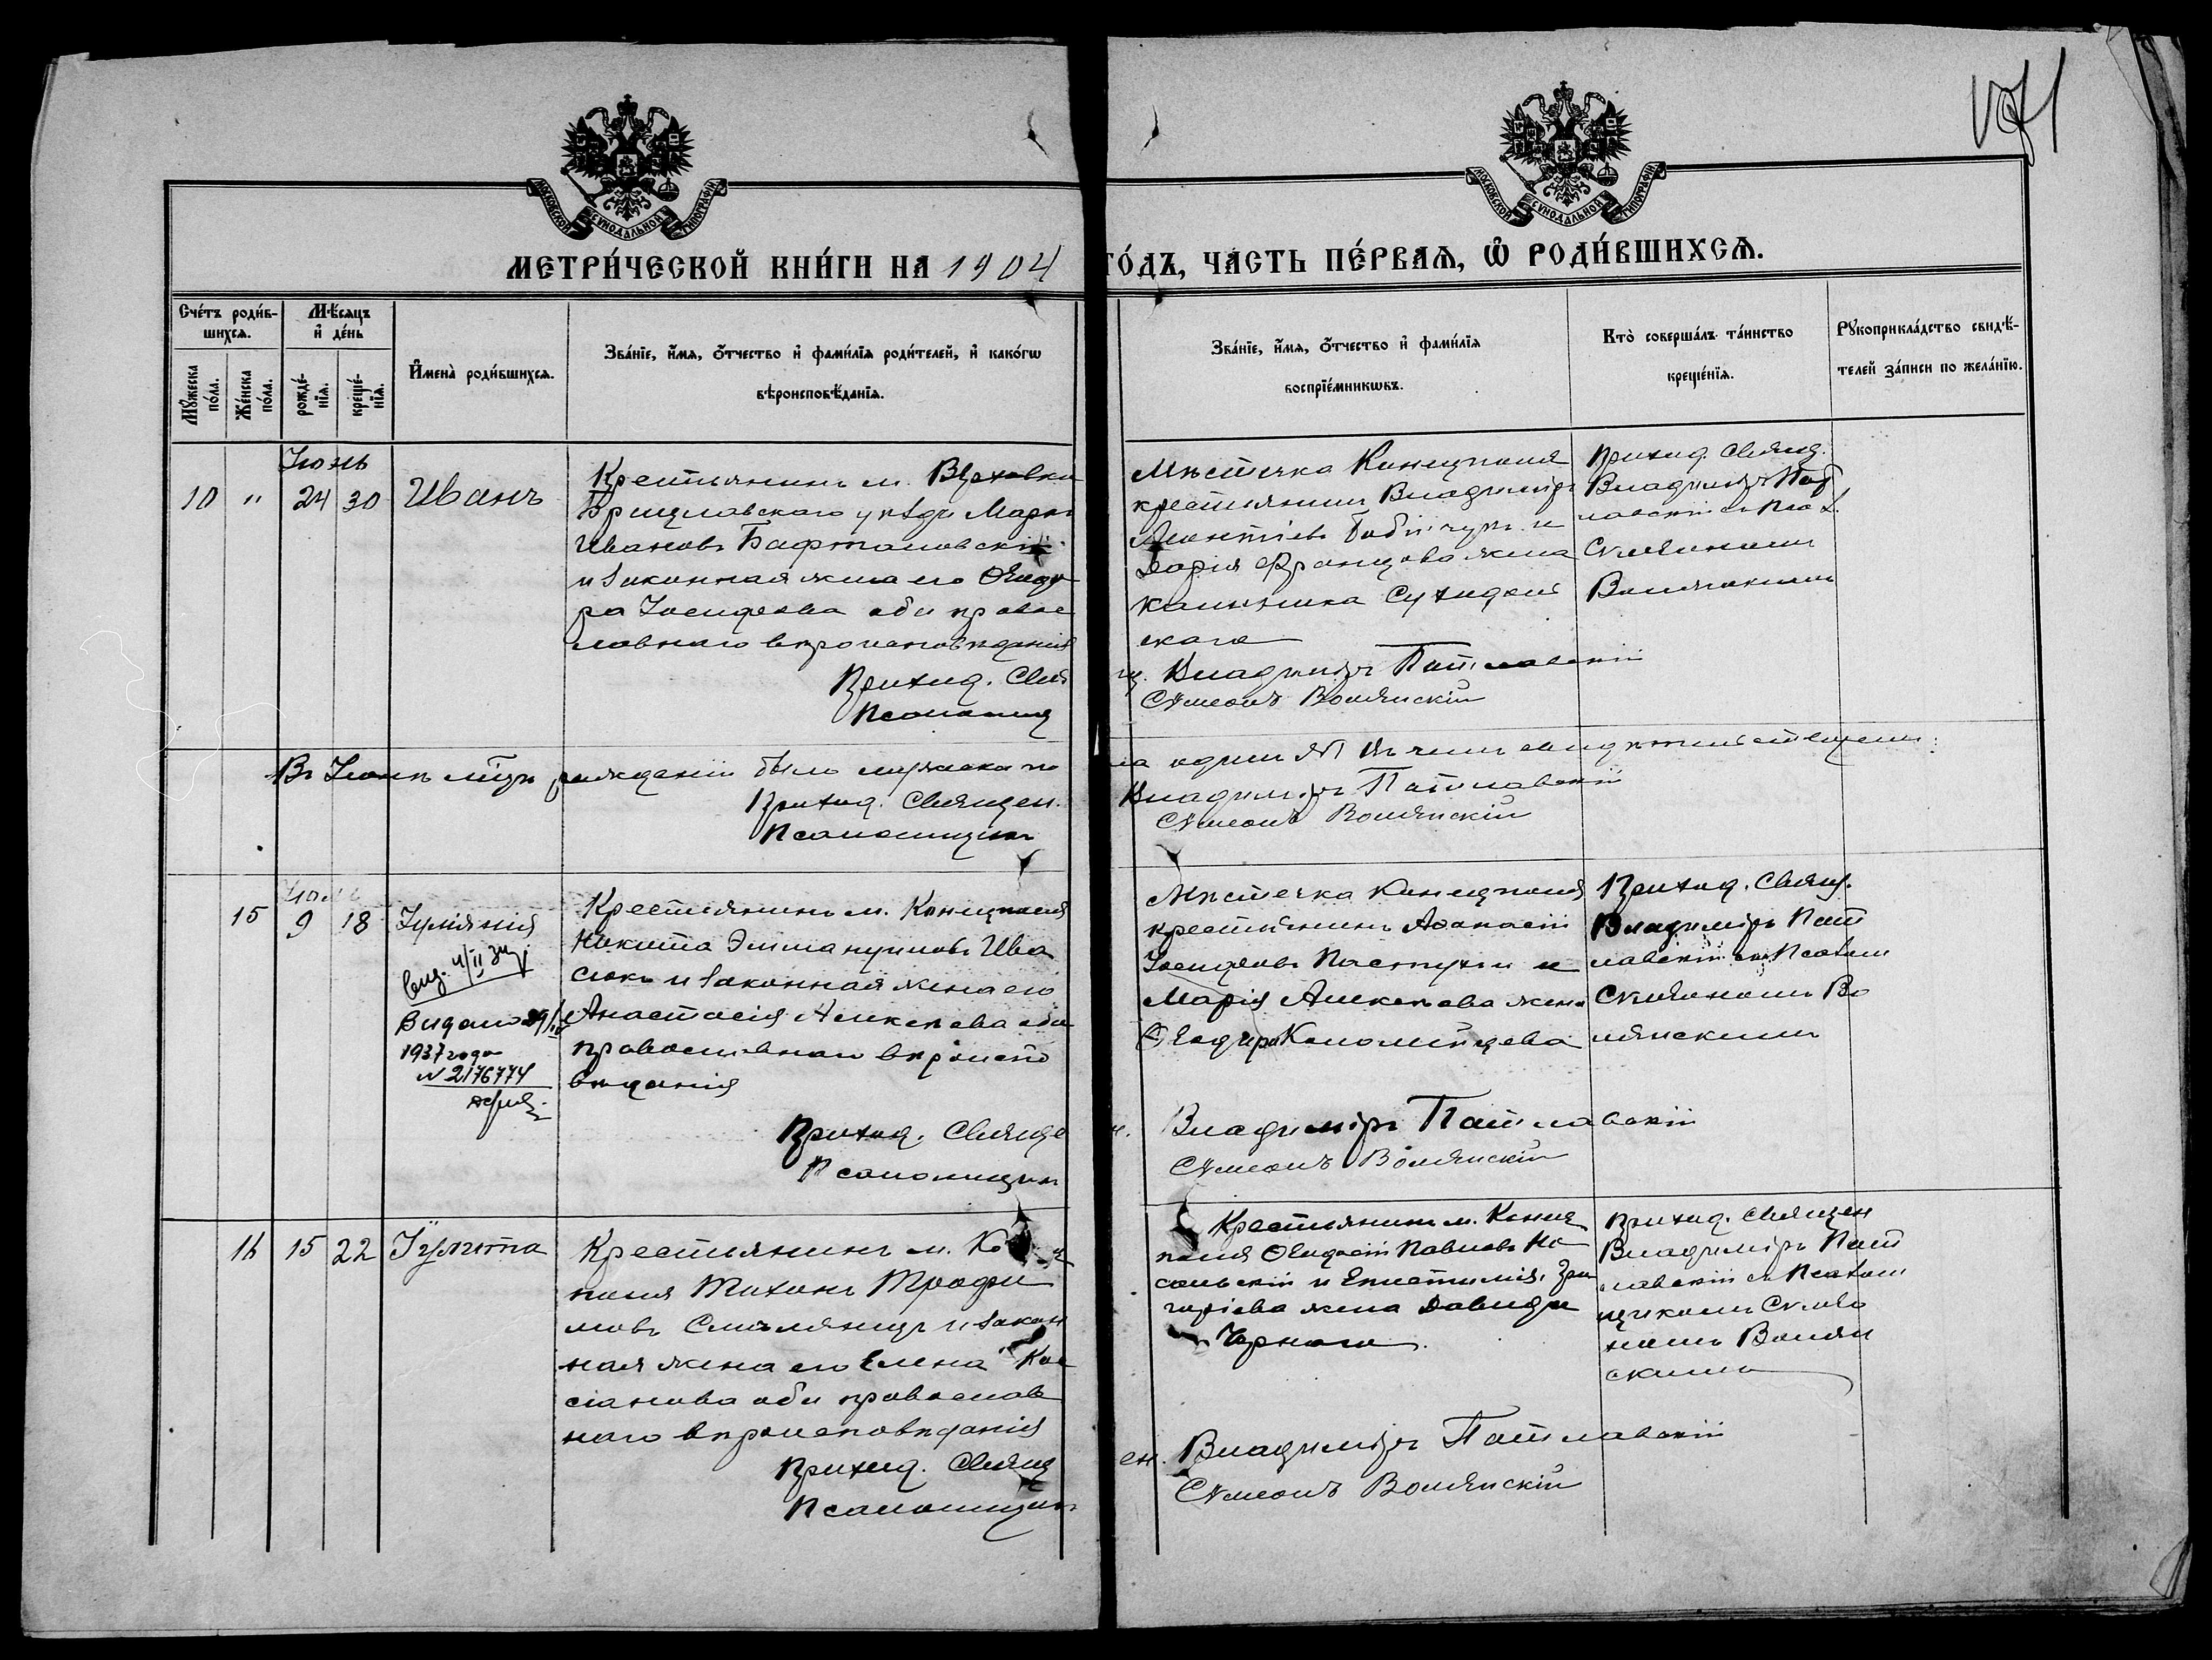 МОСКОВСКОЙ СУНОДАЛЬНОЙ ТИПОГРАФІИ
МОСКОВСКОЙ СУНОДАЛЬНОЙ ТИПОГРАФІИ
МЕТРИ́ЧЕСКОЙ КНИ́ГИ НА 1904
ГО́ДЪ, ЧА́СТЬ ПЕ́РВАѦ, Ѡ҆ РОДИ́ВШИХСѦ.
Сче́тъ роди́в-
шихсѧ.
Мꙋжеска по́ла.
Же́нска по́ла.
Мѣ́сѧцъ
и҆ де́нь
рожде́-
нїѧ.
креще́-
нїѧ.
И҆мена̀ роди́вшихсѧ.
Зва́нїе, и҆́мѧ, ѻ҆́тчество и҆ фами́лїѧ роди́телей, и҆ како́гѡ
вѣроисповѣ́данїѧ.
Зва́нїе, и҆́мѧ, ѻ҆́тчество и҆ фами́лїѧ
воспрїе́мникѡвъ.
Кто̀ соверша́лъ та́инство
креще́нїѧ.
Рꙋкоприкла́дство свидѣ́-
телей за́писи по жела́нїю.
Іюнь
10 " 24 30 Иванъ
Крестьянинъ м. Верховки
Брацлавскаго уѣзда Марко
Ивановъ Бафталовскій
и законная жена его Ѳеодо
ра Іосифова оба право
славнаго вѣроисповѣданія
Приход. Свя
Псаломщ
Мѣстечка Конецполя
крестьянинъ Владиміръ
Леонтіевъ и
Дарія Францова жена
Калинника
скаго
щ. Владиміръ Патлавскій
Сѵмеонъ Волянскій
Приход. Свящ.
Владиміръ Пат
лавскій съ Псал.
Сѵмеономъ
Волянскимъ
Въ Іюнѣ мѣсцѣ рожденій было мужска по
Приход. Священ.
Псаломщикъ
ла одинъ № въ чемъ свидѣтельствуемъ:
Владиміръ Патлавскій
Сѵмеонъ Волянскій
Іюль
15 9 18 Іуліанія
Видано 29/
1937 года
№ 2176774
Крестьянинъ м. Конецполя
Никита Эммануиловъ Ива
сюкъ и законная жена его
Анастасія Алексѣева оба
православнаго вѣроиспо
вѣданія
Приход. Свяще
Псаломщикъ
Мѣстечка Конецполя
крестьянинъ Аѳанасій
Іосифовъ Пастухъ и
Марія Алексѣева жена
Ѳеодора Коломійцева
н. Владиміръ Патлавскій
Сѵмеонъ Волянскій
Приход. Свящ.
Владиміръ Пат
лавскій съ Псалом
Сѵмеономъ Во
лянскимъ
16 15 22 Іулитта
Крестьянинъ м. Конец
поля Тихонъ Трофи
мовъ Смолянецъ и закон
ная жена его Елена Кас
сіанова оба православ
наго вѣроисповѣданія
Приход. Священ
Псаломщикъ
Крестьянинъ м. Конец
поля Ѳеодосій Павловъ Но
сальскій и Епистимія Гри
горіева жена Давида
Чорнаго.
ен. Владиміръ Патлавскій
Сѵмеонъ Волянскій
Приход. Священ
Владиміръ Пат
лавскій съ Псалом
щикомъ Сѵмео
номъ Волян
скимъ